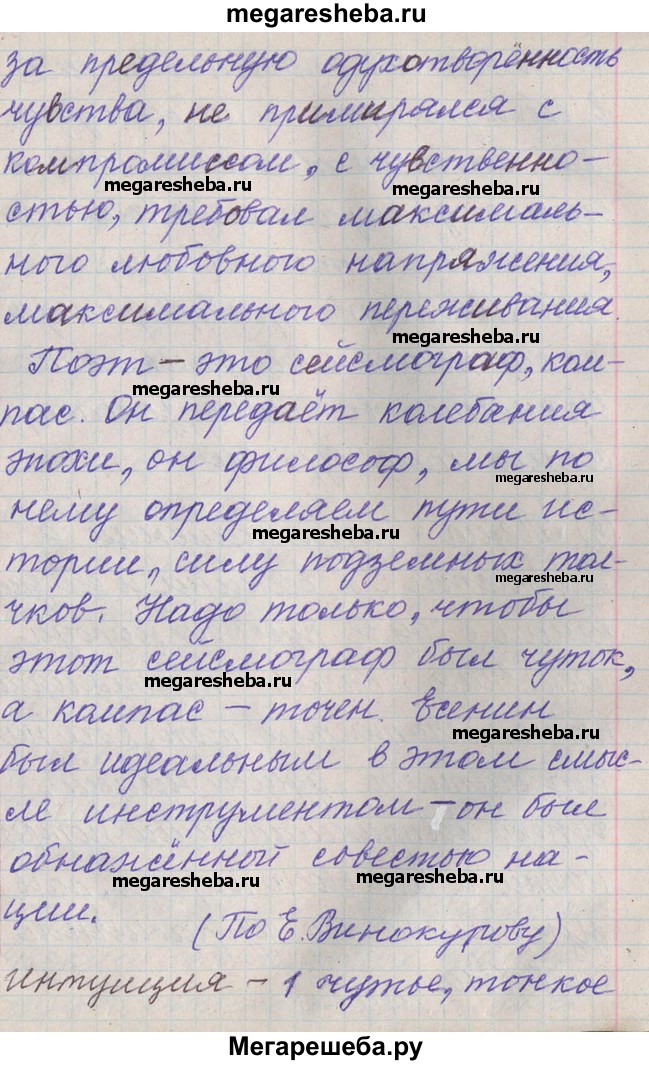 megaresheba.ru
за предельную одухотворённость
чувства, не примирялся с
компромиссом, с чувственно-
megaresheba.ru megaresheba.ru
стью, требовал максималь-
ного любовного напряжения,
максимального переживания.
megaresheba.ru
Поэт – это сейсмограф, ком-
megaresheba.ru
пас. Он передаёт колебания
эпохи, он философ, мы по
megaresheba.ru
нему определяем пути ис-
megaresheba.ru
тории, силу подземных тол-
megaresheba.ru
чков. Надо только, чтобы
этот сейсмограф был чуток,
megaresheba.ru
а компас – точен. Есенин
megaresheba.ru
был идеальным в этом смыс-
ле инструментом – он был
обнажённой совестью на-
megaresheba.ru megaresheba.ru
ции.
(По Е. Винокурову)
Интуиция – 1 чутье, тонкое
Мегарешеба.ру